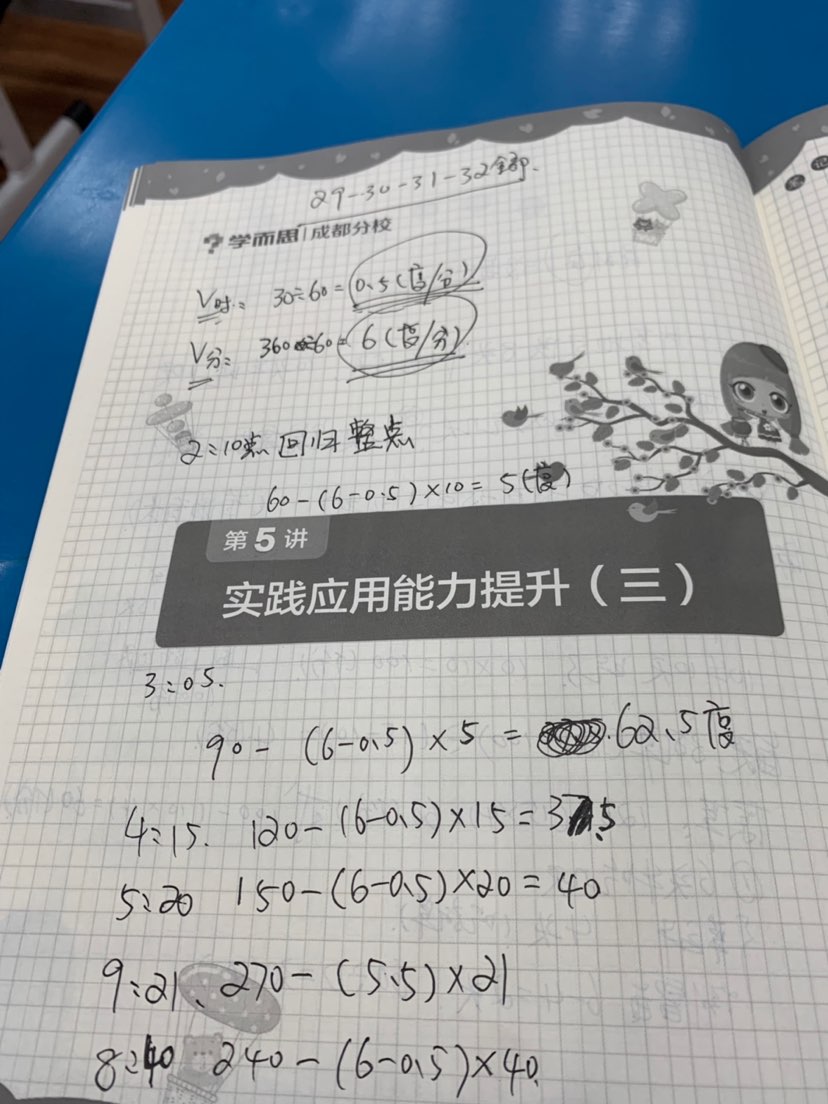 29-30-31-32全部.
学而思 | 成都分校
V时: 30÷60=0.5(度/分)
V分: 360÷60=6(度/分)
2:10点 回归整点
60-(6-0.5)×10=5(度)
第5讲
实践应用能力提升（三）
3:05.
90-(6-0.5)×5=62.5度
4:15. 120-(6-0.5)×15=37.5
5:20 150-(6-0.5)×20=40
9:21、270-(5.5)×21
8:40 240-(6-0.5)×40.